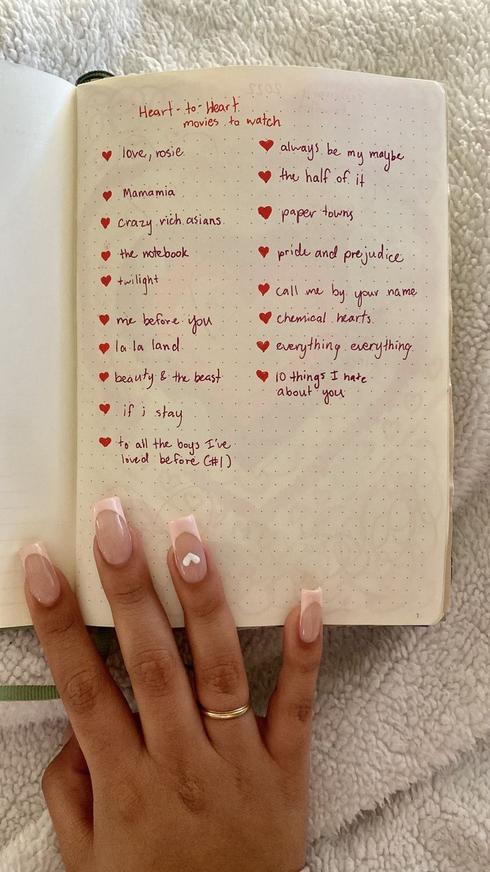 Heart-to-Heart
movies to watch
love, rosie
Mamamia
crazy rich asians
the notebook
twilight
me before you
la la land
beauty & the beast
if i stay
to all the boys I've
loved before (#1)
always be my maybe
the half of it
paper towns
pride and prejudice
call me by your name
chemical hearts
everything everything
10 things I hate
about you